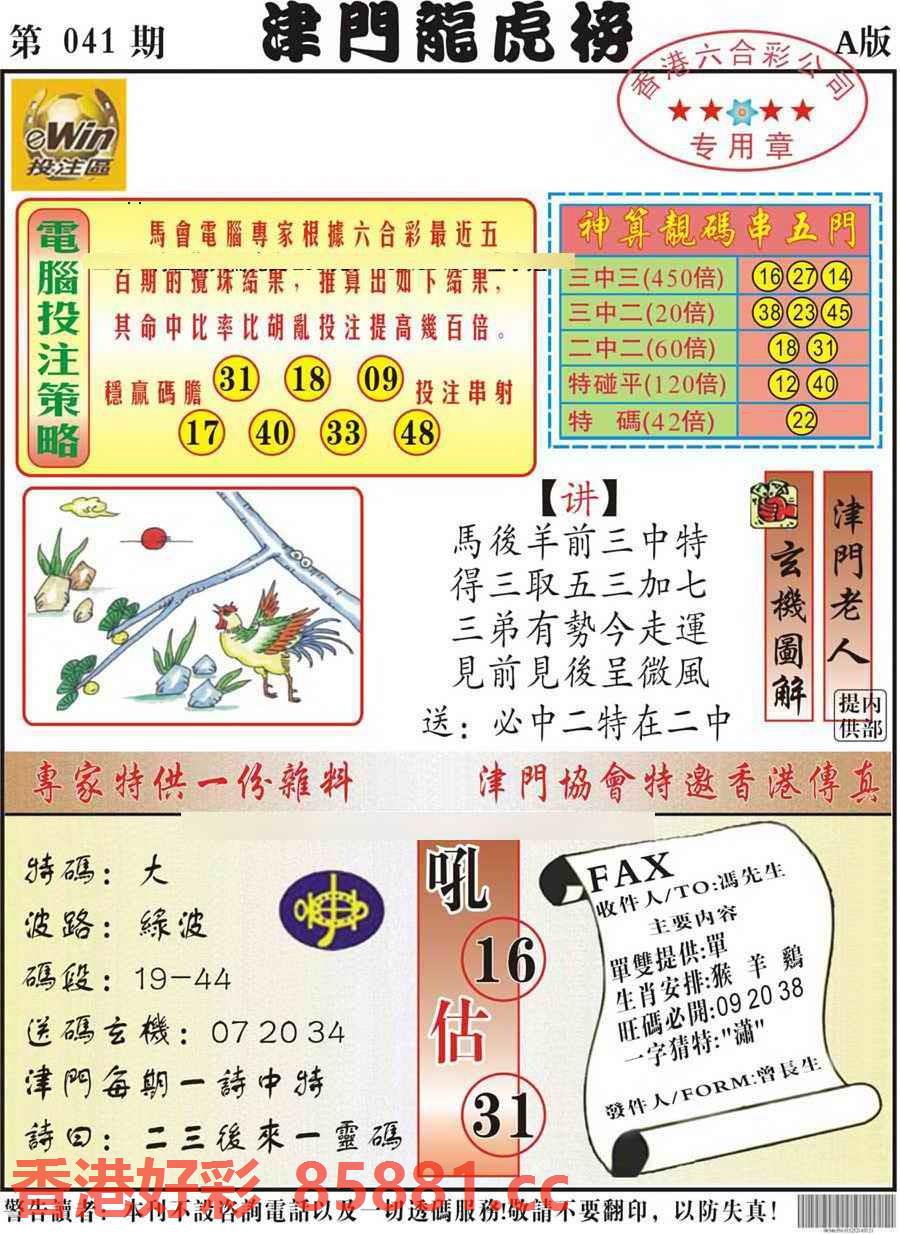 第 041 期
津門龍虎榜
A版
香港六合彩公司
专用章
eWin
投注區
電腦投注策略
馬會電腦專家根據六合彩最近五
百期的攪珠結果，推算出如下結果，
其命中比率比胡亂投注提高幾百倍。
穩贏碼膽 31 18 09 投注串射
17 40 33 48
神算靚碼串五門
三中三(450倍) 16 27 14
三中二(20倍) 38 23 45
二中二(60倍) 18 31
特碰平(120倍) 12 40
特 碼(42倍) 22
【讲】
馬後羊前三中特
得三取五三加七
三弟有勢今走運
見前見後呈微風
送：必中二特在二中
玄機圖解
津門老人
提供
内部
專家特供一份雜料
津門協會特邀香港傳真
特碼：大
波路：綠波
碼段：19-44
送碼玄機：07 20 34
津門每期一詩中特
詩曰：二三後來一靈碼
吼
16
估
31
FAX
收件人/TO:馮先生
主要内容
單雙提供:單
生肖安排:猴 羊 鷄
旺碼必開:09 20 38
一字猜特:"瀟"
發件人/FORM:曾長生
香港好彩 85881.cc
警告讀者：本刊不設咨詢電話以及一切透碼服務!敬請不要翻印，以防失真!